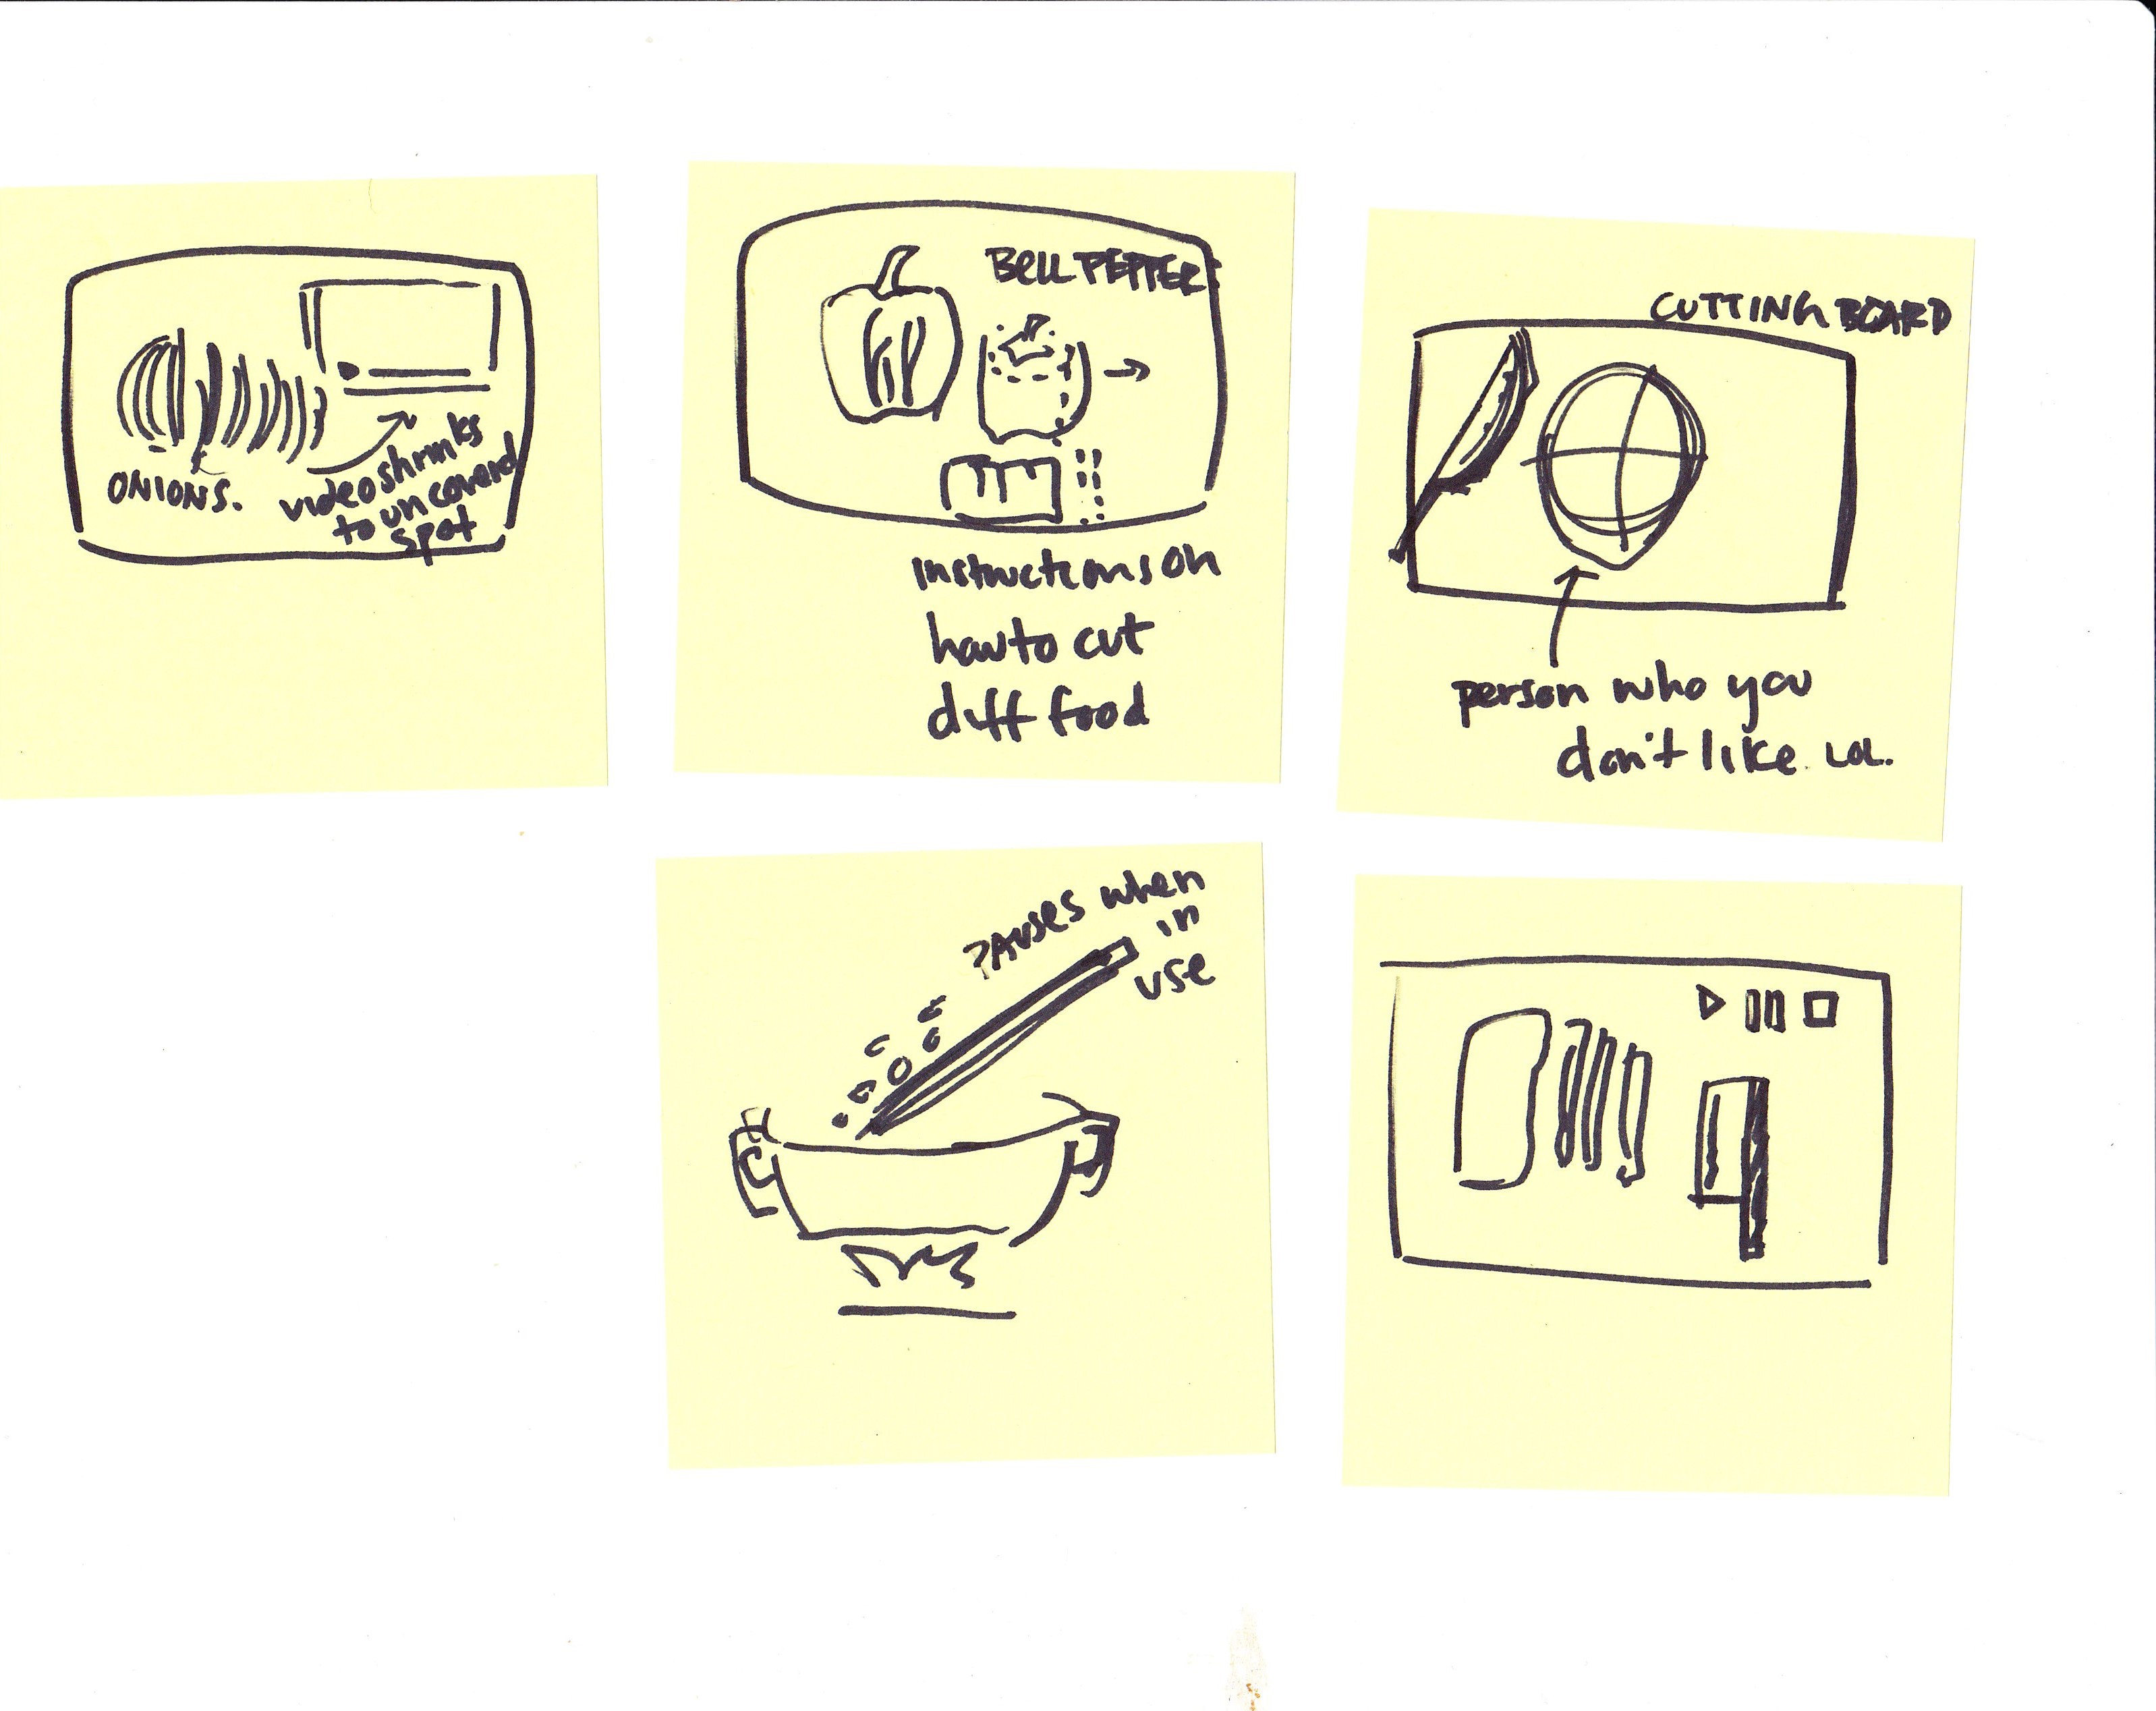 ONIONS.
video shrinks
to uncoverd
spot
BELL PEPPER
instructions on
how to cut
diff food
CUTTING BOARD
person who you
don't like. LOL.
PAUSES when
in
use